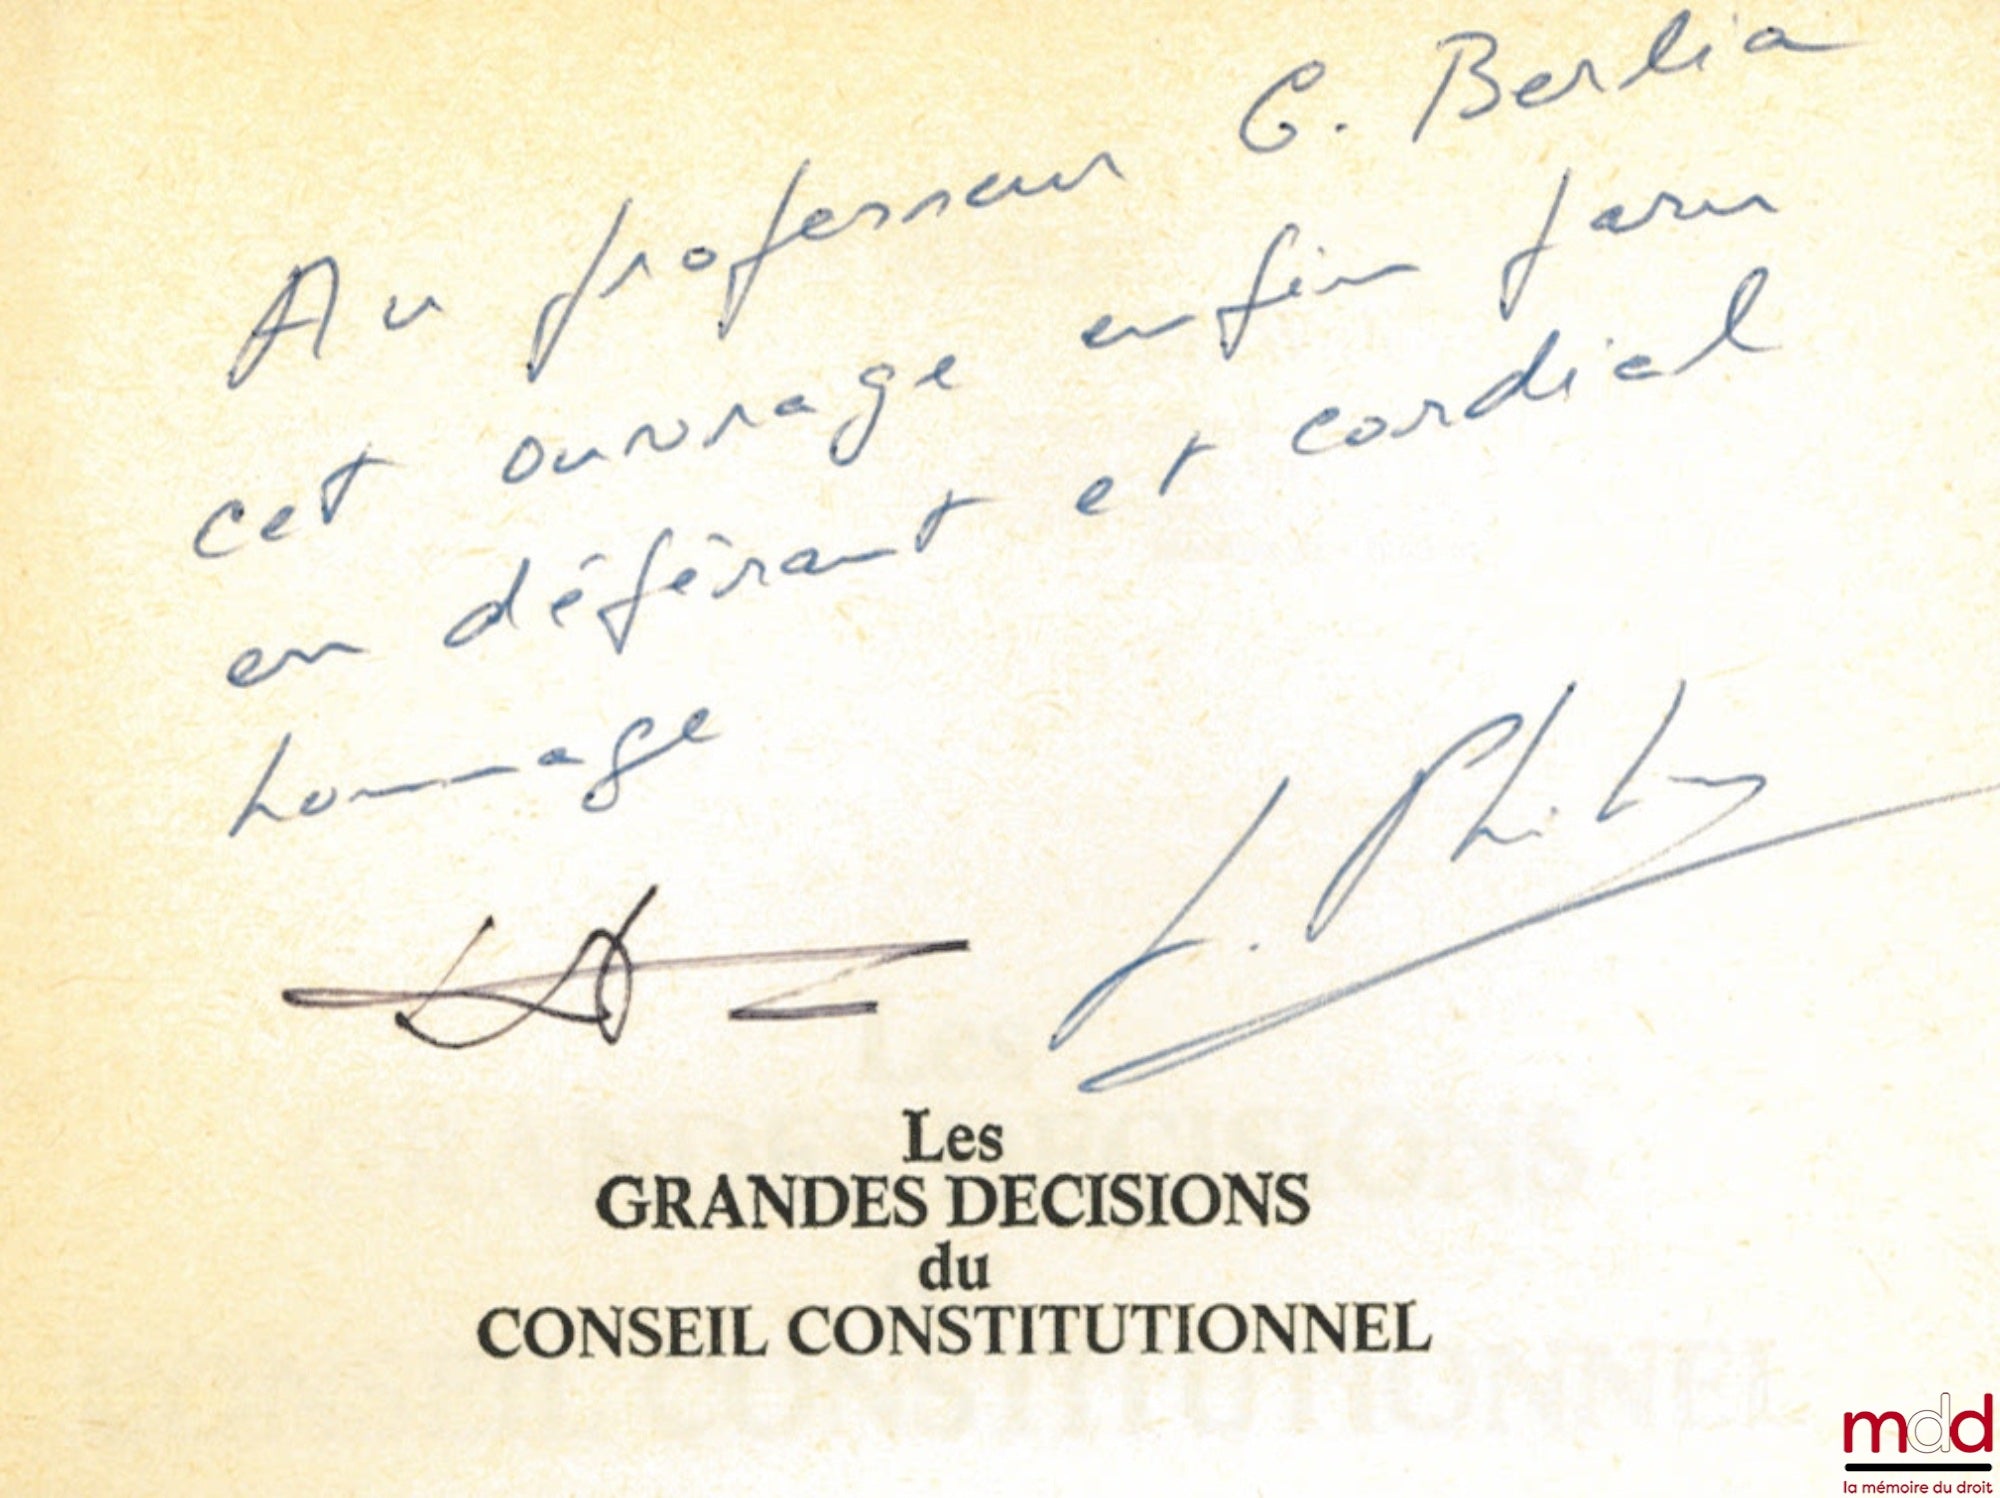 Au professeur G. Berlia
cet ouvrage enfin paru
en déférent et cordial
hommage
L. Philip
Les
GRANDES DECISIONS
du
CONSEIL CONSTITUTIONNEL
mdd
la mémoire du droit